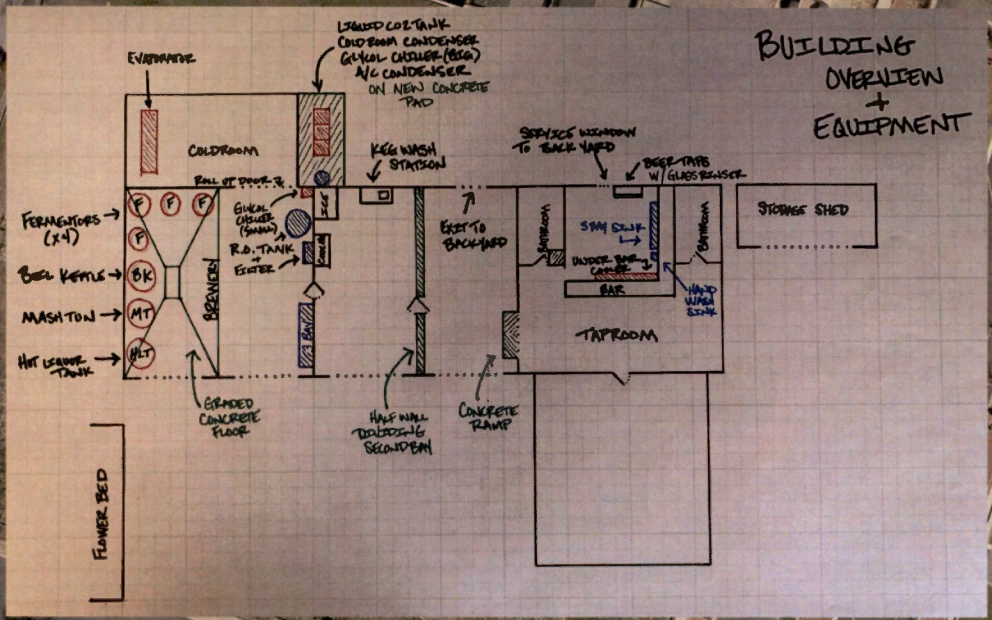 BUILDING
OVERVIEW
+
EQUIPMENT
LIQUID CO2 TANK
COLDROOM CONDENSER
GLYCOL CHILLER (BIG)
A/C CONDENSER
ON NEW CONCRETE
PAD
EVAPORATOR
COLDROOM
ROLL UP DOOR
KEG WASH
STATION
SERVICE WINDOW
TO BACK YARD
BEER TAPS
W/ GLASS RINSER
STORAGE SHED
FERMENTORS
(x4)
F
F
F
F
BOIL KETTLE
BK
MASH TUN
MT
HOT LIQUOR
TANK
HLT
BREWERY
GLYCOL
CHILLER
(SMALL)
R.O. TANK
+
FILTER
ICE
3 BAY
EXIT TO
BACKYARD
BATHROOM
3 BAY SINK
UNDER BAR
COOLER
BAR
BATHROOM
HAND
WASH
SINK
TAPROOM
GRADED
CONCRETE
FLOOR
HALF WALL
DIVIDING
SECOND BAY
CONCRETE
RAMP
FLOWER BED